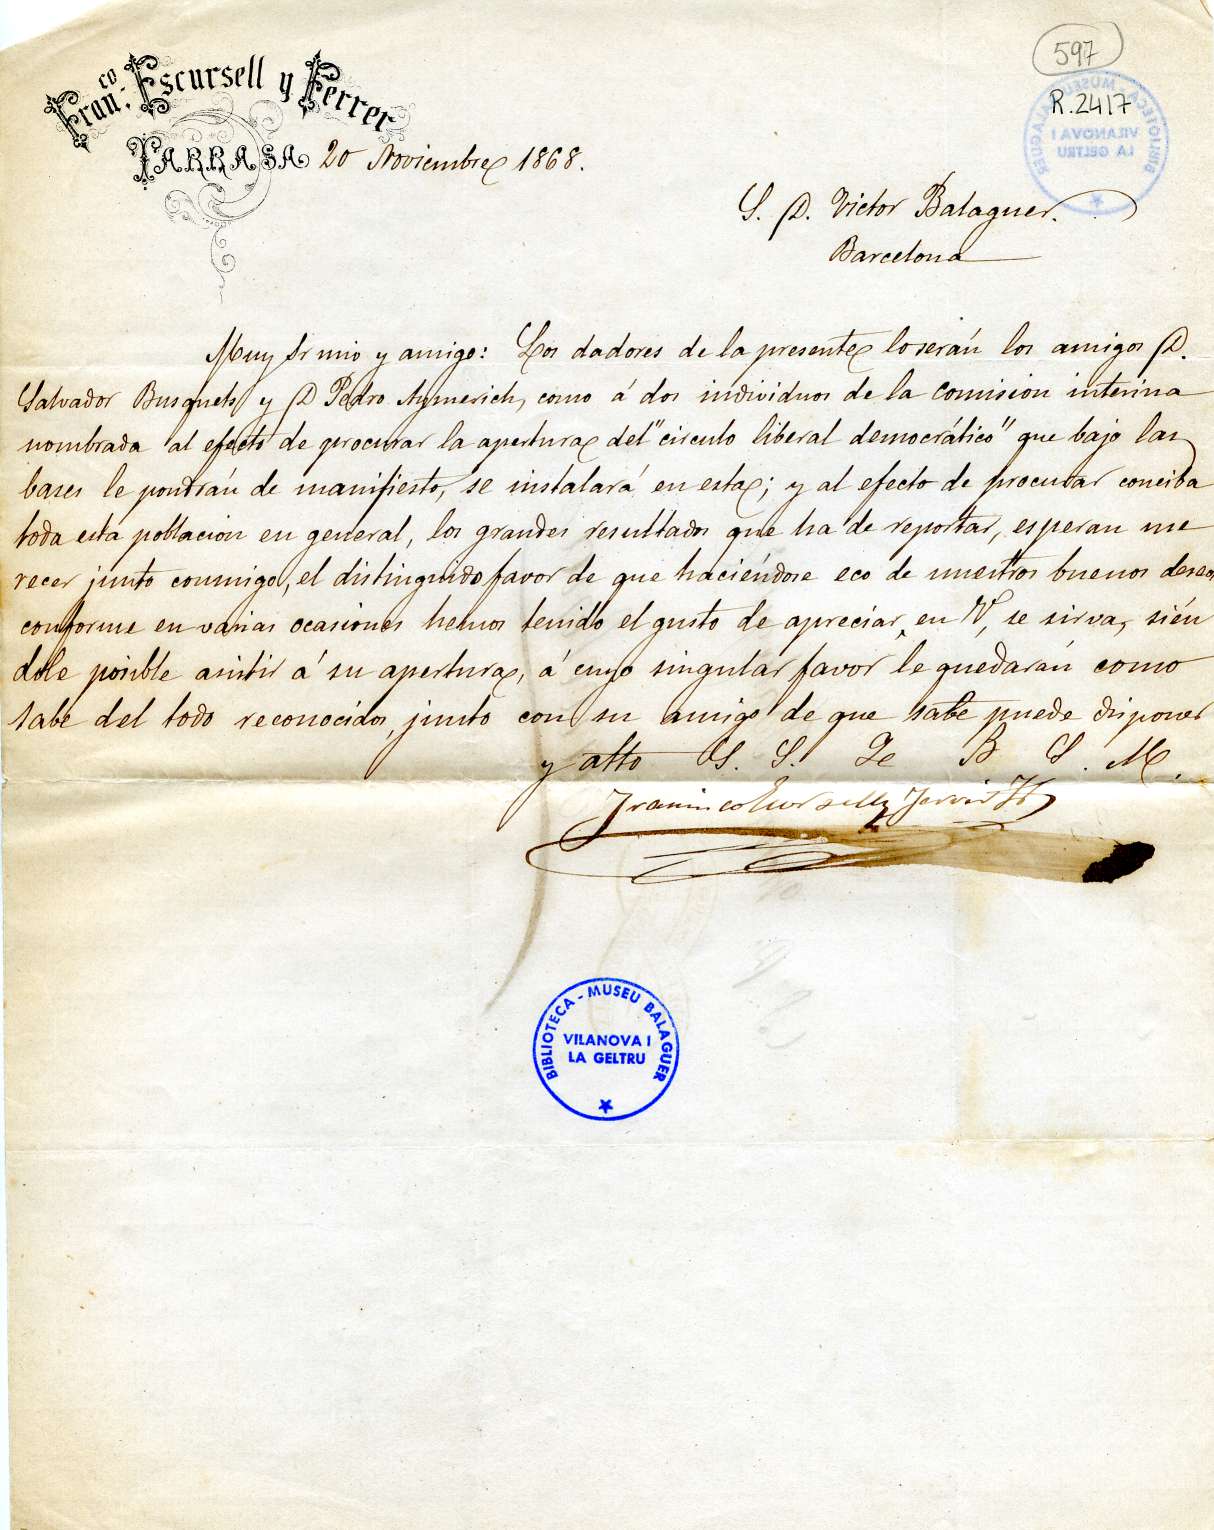 597
R.2417
Fran.co Escursell y Ferrer
TARRASA 20 Noviembre 1868.
S. D. Victor Balaguer.
Barcelona
Muy Sr mio y amigo: Los dadores de la presente lo serán los amigos D.
Salvador Busquets y D Pedro Aymerich, como á dos individuos de la comision interina
nombrada al efecto de procurar la apertura del "circulo liberal democrático" que bajo las
bases le pondrán de manifiesto, se instalará en esta; y al efecto de procurar conciba
toda esta poblacion en general, los grandes resultados que ha de reportar, esperan me
recer junto conmigo, el distinguido favor de que haciéndose eco de nuestros buenos deseos
conforme en varias ocasiones hemos tenido el gusto de apreciar en V, se sirva, sién
dole posible asistir á su apertura, á cuyo singular favor le quedarán como
sabe del todo reconocidos, junto con su amigo de que sabe puede disponer
y atto S. S. Q B S. M.
Francisco Escursell y Ferrer
BIBLIOTECA - MUSEU BALAGUER
VILANOVA I
LA GELTRU